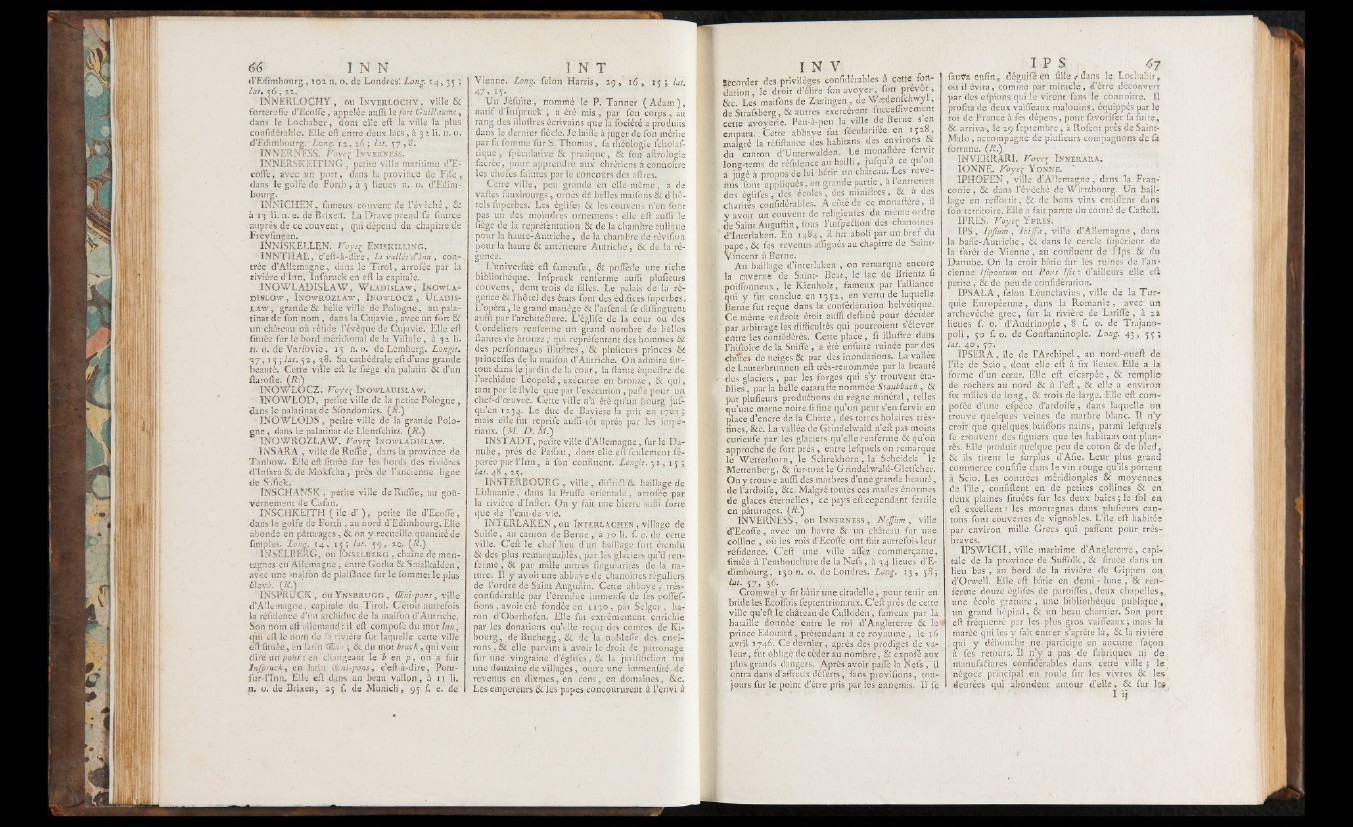 66 INN
d'Edimbourg, 102 n. o. de Londres. Long. 14, 35 ;
lat. 56, 22.
INNERLOCHY, ou INVERLOCHY, ville &
forteresse d'Ecosse, appelée aussi le fort Guillaume,
dans le Lochaber, dont elle est la ville la plus
considérable. Elle est entre deux lacs, à 32 li. n. o.
d'Edimbourg. Long. 12, 26 ; lat. 57, 8.
INNERNESS. Voyez INVERNESS.
INNERSKEITING, petite ville maritime d'E-
cosse, avec un port, dans la province de Fife,
dans le golfe de Forth, à 3 lieues n. o. d'Edim-
bourg.
INNICHEN, fameux couvent de l'évêché, &
à 13 li. n. e. de Brixen. La Drave prend sa source
auprès de ce couvent, qui dépend du chapitre de
Freysingen.
INNISKELLEN. Voyez ENISKILLING.
INNTHAL, c'est-à-dire, la vallée d'Inn, con-
trée d'Allemagne, dans le Tirol, arrosée par la
rivière d'Inn. Inspruck en est la capitale.
INOWLADISLAW, WLADISLAW, INOWLA-
DISLOW, INOWROZLAW, INOWLOCZ, ULADIS-
LAW, grande & belle ville de Pologne, au pala-
tinat de son nom, dans la Cujavie, avec un fort &
un château où réside l'évêque de Cujavie. Elle est
située sur le bord méridional de la Vistule, à 32 li.
n. o. de Varsovie, 15 n. o. de Lemberg. Longit.
37, 15 ; lat. 52, 38. Sa cathédrale est d'une grande
beauté. Cette ville est le siége du palatin & d'un
staroste. (R.)
INOWLOCZ. Voyez INOWLADISLAW.
INOWLOD, petite ville de la petite Pologne,
dans le palatinat de Sfondomirs. (R.)
INOWLODS, petite ville de la grande Polo-
gne, dans le palatinat de Llentschitz. (R.)
INOWROZLAW. Voyez INOWLADISLAW.
INSARA, ville de Russie, dans la province de
Tambow. Elle est située sur les bords des rivières
d'Inssara & de Mokscha, près de l'ancienne ligne
de Sisick.
INSCHANSK, petite ville de Russie, au gou-
vernement de Casan.
INSCHKEITH (île d'), petite île d'Ecosse,
dans le golfe de Forth, au nord d'Edimbourg. Elle
abonde en pâturages, & on y recueille quantité de
simples. Long. 14, 15 ; lat. 59, 20. (R.)
INSELBERG, ou ENSELBERG, chaîne de mon-
tagnes en Allemagne, entre Gotha & Smalkalden,
avec une maison de plaisance sur le sommet le plus
élevé. (R.)
INSPRUCK, ou YNSBRUGG, Œni-pons, ville
d'Allemagne, capitale du Tirol. C'étoit autrefois
la résidence d'un archiduc de la maison d'Autriche.
Son nom est allemand : il est composé du mot Inn,
qui est le nom de la rivière sur laquelle cette ville
est située, en latin Œnus ; & du mot bruck, qui veut
dire un pont : en changeant le b en p, on a fait
Inspruck, en latin Œni-pons, c'est-à-dire, Pont-
sur-l'Inn. Elle est dans un beau vallon, à 11 li.
n. o. de Brixen, 25 s. de Munich, 95 s. e. de
INT
Vienne. Long. selon Harris, 29, 16, 15 ; lat.
47, 15.
Un Jésuite, nommé le P. Tanner (Adam),
natif d'Inspruck, a été mis, par son corps, au
rang des illustres écrivains que la société a produits
dans le dernier siècle. Je laisse à juger de son mérite
par sa somme sur S. Thomas, sa théologie scholas-
tique, spéculative & pratique, & son astrologie
sacrée, pour apprendre aux chrétiens à connoître
les choses saintes par le concours des astres.
Cette ville, peu grande en elle même, a de
vastes fauxbourgs, ornés de belles maisons & d'hô-
tels superbes. Les églises & les couvens n'en sont
pas un des moindres ornemens : elle est aussi le
siége de la représentation & de la chambre aulique
pour la haute-Autriche, de la chambre de révision
pour la haute & antérieure Autriche, & de la ré-
gence.
L'université est fameuse, & possède une riche
bibliothèque. Inspruck renferme aussi plusieurs
couvens, dont trois de filles. Le palais de la ré-
gence & l'hôtel des états sont des édifices superbes.
L'opéra, le grand manège & l'arsenal se distinguent
aussi par l'architecture. L'église de la cour ou des
Cordeliers renferme un grand nombre de belles
statues de bronze, qui représentent des hommes &
des personnages illustres, & plusieurs princes &
princesses de la maison d'Autriche. On admire sur-
tout dans le jardin de la cour, la statue équestre de
l'archiduc Léopold, exécutée en bronze, & qui,
tant par le style que par l'exécution, passe pour un
chef-d'œuvre. Cette ville n'a été qu'un bourg jus-
qu'en 1234. Le duc de Baviere la prit en 1703 ;
mais elle fut reprise aussi-tôt après par les impé-
riaux. (M. D. M.)
INSTADT, petite ville d'Allemagne, sur le Da-
nube, près de Passau, dont elle est seulement sé-
parée par l'Inn, à son confluent. Longit. 31, 15 ;
lat. 48, 25.
INSTERBOURG, ville, district & bailliage de
Lithuanie, dans la Prusse orientale, arrosée par
la rivière d'Inster. On y fait une bierre aussi forte
que de l'eau-de-vie.
INTERLAKEN, ou INTERLACHEN, village de
Suisse, au canton de Berne, à 10 li. s. e. de cette
ville. C'est le chef lieu d'un bailliage fort étendu
& des plus remarquables, par les glaciers qu'il ren-
ferme, & par mille autres singularités de la na-
ture. Il y avoit une abbaye de chanoines réguliers
de l'ordre de Saint Augustin. Cette abbaye, très-
considérable par l'étendue immense de ses posses-
sions, avoit été fondée en 1130, par Selger, ba-
ron d'Oberhofen. Elle fut extrêmement enrichie
par les donations qu'elle reçut des comtes de Ki-
bourg, de Buchegg, & de la noblesse des envi-
rons, & elle parvint à avoir le droit de patronage
sur une vingtaine d'églises, & la jurisdiction sur
une douzaine de villages, outre une immensité de
revenus en dixmes, en cens, en domaines, &c.
Les empereurs & les papes concoururent à l'envi à
INV
accorder des privilèges considérables à cette fon-
dation, le droit d'élire son avoyer, son prévôt,
&c. Les maisons de Zæringen, de Wædenschwyl,
de Strasberg, & autres exercèrent successivement
cette avoyerie. Peu-à-peu la ville de Berne s'en
empara. Cette abbaye fut sécularisée en 1528,
malgré la résistance des habitans des environs &
du canton d'Unterwalden. Le monastère servit
long-tems de résidence au bailli, jusqu'à ce qu'on
a jugé à propos de lui bâtir un château. Les reve-
nus sont appliqués, en grande partie, à l'entretien
des églises, des écoles, des ministres, & à des
charités considérables. A côté de ce monastère, il
y avoit un couvent de religieuses du même ordre
de Saint Augustin, sous l'inspection des chanoines
d'Interlaken. En 1484, il fut aboli par un bref du
pape, & ses revenus assignés au chapitre de Saint-
Vincent à Berne.
Au bailliage d'interlaken, on remarque encore
la caverne de Saint-Beat, le lac de Brientz si
poissonneux, le Kienholz, fameux par l'alliance
qui y fut conclue en 1352, en vertu de laquelle
Berne fut reçue dans la confédération helvétique.
Ce même endroit étoit aussi destiné pour décider
par arbitrage les difficultés qui pourroient s'élever
entre les confédérés. Cette place, si illustre dans
l'histoire de la Suisse, a été ensuite ruinée par des
chûtes de neiges & par des inondations. La vallée
de Lauterbrunnen est très-renommée par la beauté
des glaciers, par les forges qui s'y trouvent éta-
blies, par la belle cataracte nommée Staubbach, &
par plusieurs productions du règne minéral, telles
qu'une marne noire si fine qu'on peut s'en servir en
place d'encre de la Chine, des terres bolaires très-
fines, &c. La vallée de Grindelwald n'est pas moins
curieuse par les glaciers qu'elle renferme & qu'on
approche de fort près, entre lesquels on remarque
le Wetterhorn, le Schrekhorn, la Scheideck le
Mettenberg, & sur-tout le Grindelwald-Gletscher.
On y trouve aussi des marbres d'une grande beauté,
de l'ardoise, &c. Malgré toutes ces masses énormes
de glaces éternelles, ce pays est cependant fertile
en pâturages. (R.)
INVERNESS, ou INNERNESS, Nessum, ville
d'Ecosse, avec un havre & un château sur une
colline, où les rois d'Ecosse ont fait autrefois leur
résidence. C'est une ville assez commerçante,
située à l'embouchure de la Ness, à 34 lieues d'E-
dimbourg, 130 n. o. de Londres. Long. 13, 58 ;
lat. 57, 36.
Cromwel y fit bâtir une citadelle, pour tenir en
bride les Ecossois septentrionaux. C'est près de cette
ville qu'est le château de Culloden, fameux par la
bataille donnée entre le roi d'Angleterre & le
prince Edouard, prétendant à ce royaume, le 16
avril 1746. Ce dernier, après des prodiges de va-
leur, fut obligé de céder au nombre, & exposé aux
plus grands dangers. Après avoir passé la Ness, il
entra dans d'affreux déserts, sans provisions, tou-
jours sur le point d'être pris par les ennemis. Il se
IPS 67
sauva enfin, déguisé en fille, dans le Lochabir,
où il évita, comme par miracle, d'être découvert
par des espions qui le virent sans le connoître. Il
profita de deux vaisseaux malouins, équippés par le
roi de France à ses dépens, pour favoriser sa fuite,
& arriva, le 29 septembre, à Roscot près de Saint-
Malo, accompagné de plusieurs compagnons de sa
fortune. (R.)
INVERRARI. Voyez INNERARA.
IONNE. Voyez YONNE.
IPHOFEN, ville d'Allemagne, dans la Fran-
conie, & dans l'évêché de Wirtzbourg. Un bail-
lage en ressortit, & de bons vins croissent dans
son territoire. Elle a fait partie du comté de Castell.
IPRES. Voyez YPRES.
IPS, Ipsum, Ibissa, ville d'Allemagne, dans
la basse-Autriche, & dans le cercle supérieur de
la forêt de Vienne, au confluent de l'Ips & du
Danube. On la croit bâtie sur les ruines de l'an-
cienne Isipontum ou Pons Isis : d'ailleurs elle est
petite, & de peu de considération.
IPSALA, selon Léunclavius, ville de la Tur-
quie Européenne, dans la Romanie, avec un
archevêché grec, sur la rivière de Larisse, à 22
lieues s. o. d'Andrinople, 8 s. o. de Trajano-
poli, 59 s. o. de Constantinople. Long. 43, 55 ;
lat. 40, 57.
IPSERA, île de l'Archipel, au nord-ouest de
l'île de Scio, dont elle est à six lieues. Elle a la
forme d'un cœur. Elle est escarpée, & remplie
de rochers au nord & à l'est, & elle a environ
six milles de long, & trois de large. Elle est com-
posée d'une espèce d'ardoise, dans laquelle on
trouve quelques veines de marbre blanc. Il n'y
croît que quelques buissons nains, parmi lesquels
se trouvent des figuiers que les habitans ont plan-
tés. Elle produit quelque peu de coton & de bled,
& ils tirent le surplus d'Asie. Leur plus grand
commerce consiste dans le vin rouge qu'ils portent
à Scio. Les contrées méridionales & moyennes
de l'île, consistent en de petites collines & en
deux plaines situées sur les deux baies ; le sol en
est excellent : les montagnes dans plusieurs can-
tons sont couvertes de vignobles. L'île est habitée
par environ mille Grecs qui passent pour très-
braves.
IPSWICH, ville maritime d'Angleterre, capi-
tale de la province de Suffolk, & située dans un
lieu bas, au bord de la rivière de Gippen ou
d'Orwell. Elle est bâtie en demi-lune, & ren-
ferme douze églises de paroisses, deux chapelles,
une école gratuite, une bibliothèque publique,
un grand hôpital, & un beau chantier. Son port
est fréquenté par les plus gros vaisseaux ; mais la
marée qui les y fait entrer s'arrête là, & la rivière
qui y débouche ne participe en aucune façon
à ses retours. Il n'y a pas de fabriques ni de
manufactures considérables dans cette ville ; le
négoce principal en roule sur les vivres & les
denrées qui abondent autour d'elle, & sur les
I ij